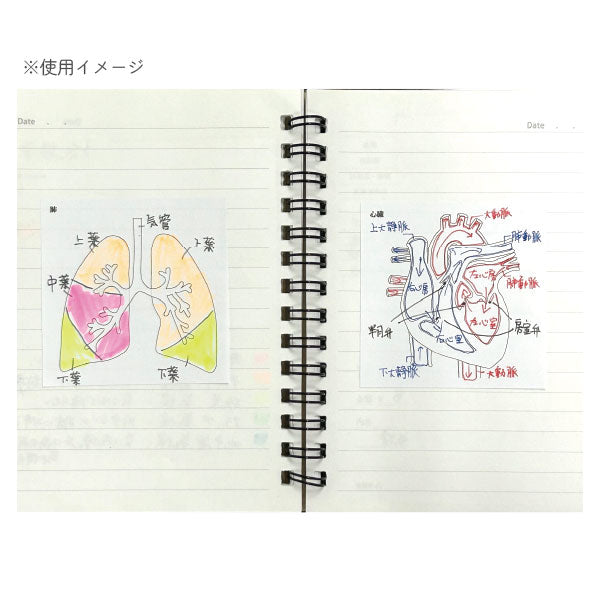 ※使用イメージ
Date . .
Date . .
肺
気管
上葉
上葉
中葉
下葉
下葉
心臓
上大静脈
大動脈
肺動脈
肺静脈
右心房
左心房
左心室
右心室
半月弁
房室弁
下大静脈
大動脈